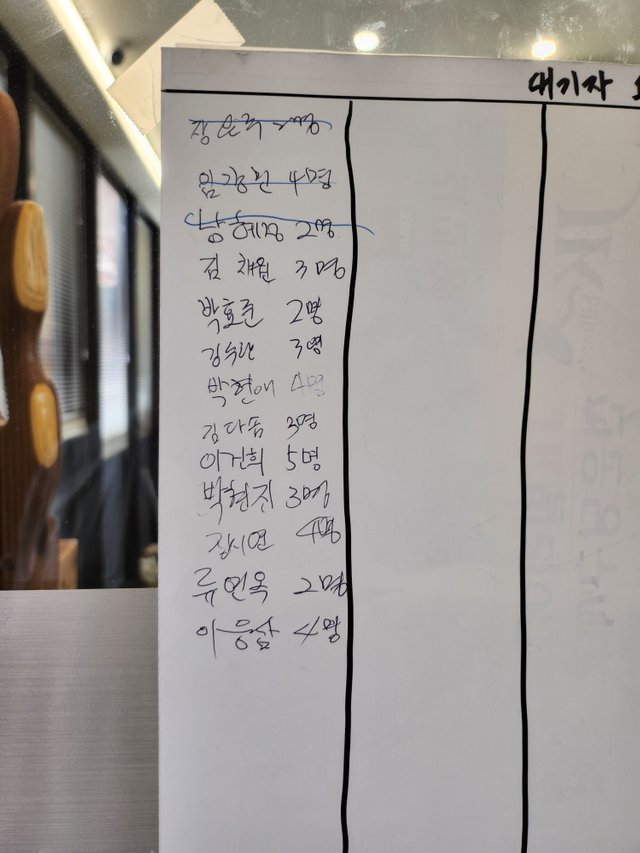 대기자
임강현 4명
남혜정 2명
김채원 3명
박효준 2명
김수란 3명
박현애 4명
김다솜 3명
이건희 5명
박현진 3명
장시연 4명
류연옥 2명
이웅삼 4명